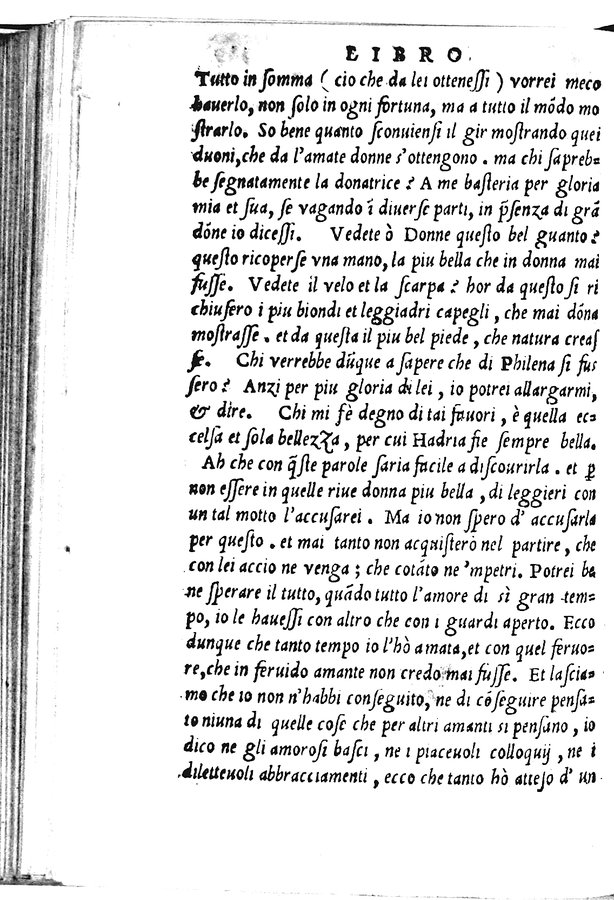 LIBRO.
Tutto in somma ( cio che da lei ottenessi ) vorrei meco
hauerlo, non solo in ogni fortuna, ma a tutto il mõdo mo
strarlo. So bene quanto sconuiensi il gir mostrando quei
duoni, che da l'amate donne s'ottengono. ma chi sapreb=
be segnatamente la donatrice? A me basteria per gloria
mia et sua, se vagando ĩ diuerse parti, in p̃senza di grã
dõne io dicessi. Vedete ò Donne questo bel guanto?
questo ricoperse vna mano, la piu bella che in donna mai
fusse. Vedete il velo et la scarpa? hor da questo si ri
chiusero i piu biondi et leggiadri capegli, che mai dõna
mostrasse. et da questa il piu bel piede, che natura creas
se. Chi verrebbe dũque a sapere che di Philena si fus
sero? Anzi per piu gloria di lei, io potrei allargarmi,
& dire. Chi mi fè degno di tai fauori, è quella ec=
celsa et sola bellezza, per cui Hadria fie sempre bella.
Ah che con q̃ste parole saria facile a discourirla. et ꝑ
non essere in quelle riue donna piu bella, di leggieri con
un tal motto l'accusarei. Ma io non spero d'accusarla
per questo. et mai tanto non acquisterò nel partire, che
con lei accio ne venga; che cotãto ne 'mpetri. Potrei be
ne sperare il tutto, quãdo tutto l'amore di sì gran tem=
po, io le hauessi con altro che con i guardi aperto. Ecco
dunque che tanto tempo io l'hò amata, et con quel feruo=
re, che in feruido amante non credo mai fusse. Et lascia=
mo che io non n'habbi conseguito, ne di cõseguire pensa=
to niuna di quelle cose che per altri amanti si pensano, io
dico ne gli amorosi basci, ne i piaceuoli colloquij, ne i
diletteuoli abbracciamenti, ecco che tanto hò atteso d'un